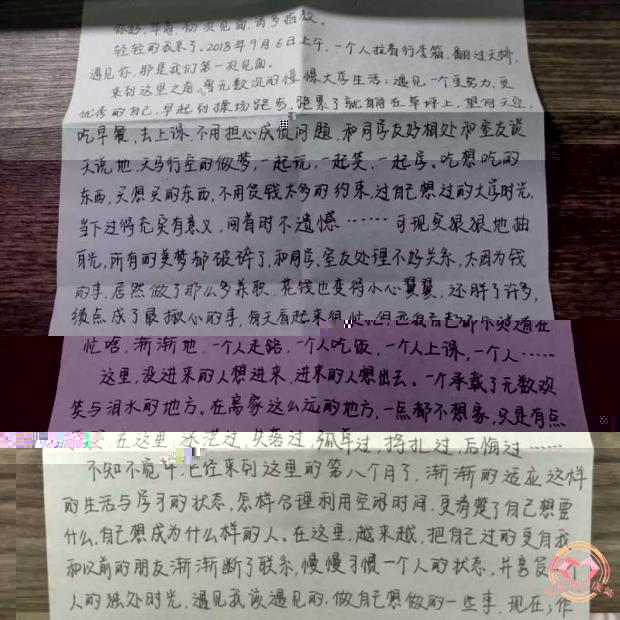 你好，华商，初次见面，请多指教。
轻轻的我来了。2018年9月6日上午，一个人拉着行李箱，翻过天桥，
遇见你，那是我们第一次见面。
来到这里之前，无数次的憧憬大学生活：遇见一个更努力，更
优秀的自己，早起到操场跑步，跑累了就躺在草坪上，望向天空，
吃早餐，去上课，不用担心成绩问题，和同学友好相处和室友谈
天说地，天马行空的做梦，一起玩，一起笑，一起学。吃想吃的
东西，买想买的东西，不用受钱太多的约束，过自己想过的大学时光，
当下过得充实有意义，回首时不遗憾……可现实狠狠地抽
耳光，所有的美梦都破碎了，和同学，室友处理不好关系，太因为钱
的事，居然做了那么多兼职，花钱也变得小心翼翼，还胖了许多，
绩点成了最揪心的事，每天看起来很忙，但
忙啥，渐渐地，一个人走路，一个人吃饭，一个人上课，一个人……
这里，没进来的人想进来，进来的人想出去。一个承载了无数欢
笑与泪水的地方。在离家这么远的地方，一点都不想家，只是有点
在这里，迷茫过，失落过，孤单过，挣扎过，后悔过……
不知不觉中，已经来到这里的第八个月了，渐渐的适应这样
的生活与学习的状态，怎样合理利用空闲时间，更清楚了自己想要
什么，自己想成为什么样的人。在这里，越来越，把自己过的更自我
和以前的朋友渐渐断了联系，慢慢习惯一个人的状态，并享受
人的独处时光，遇见我该遇见的，做自己想做的一些事，现在，作